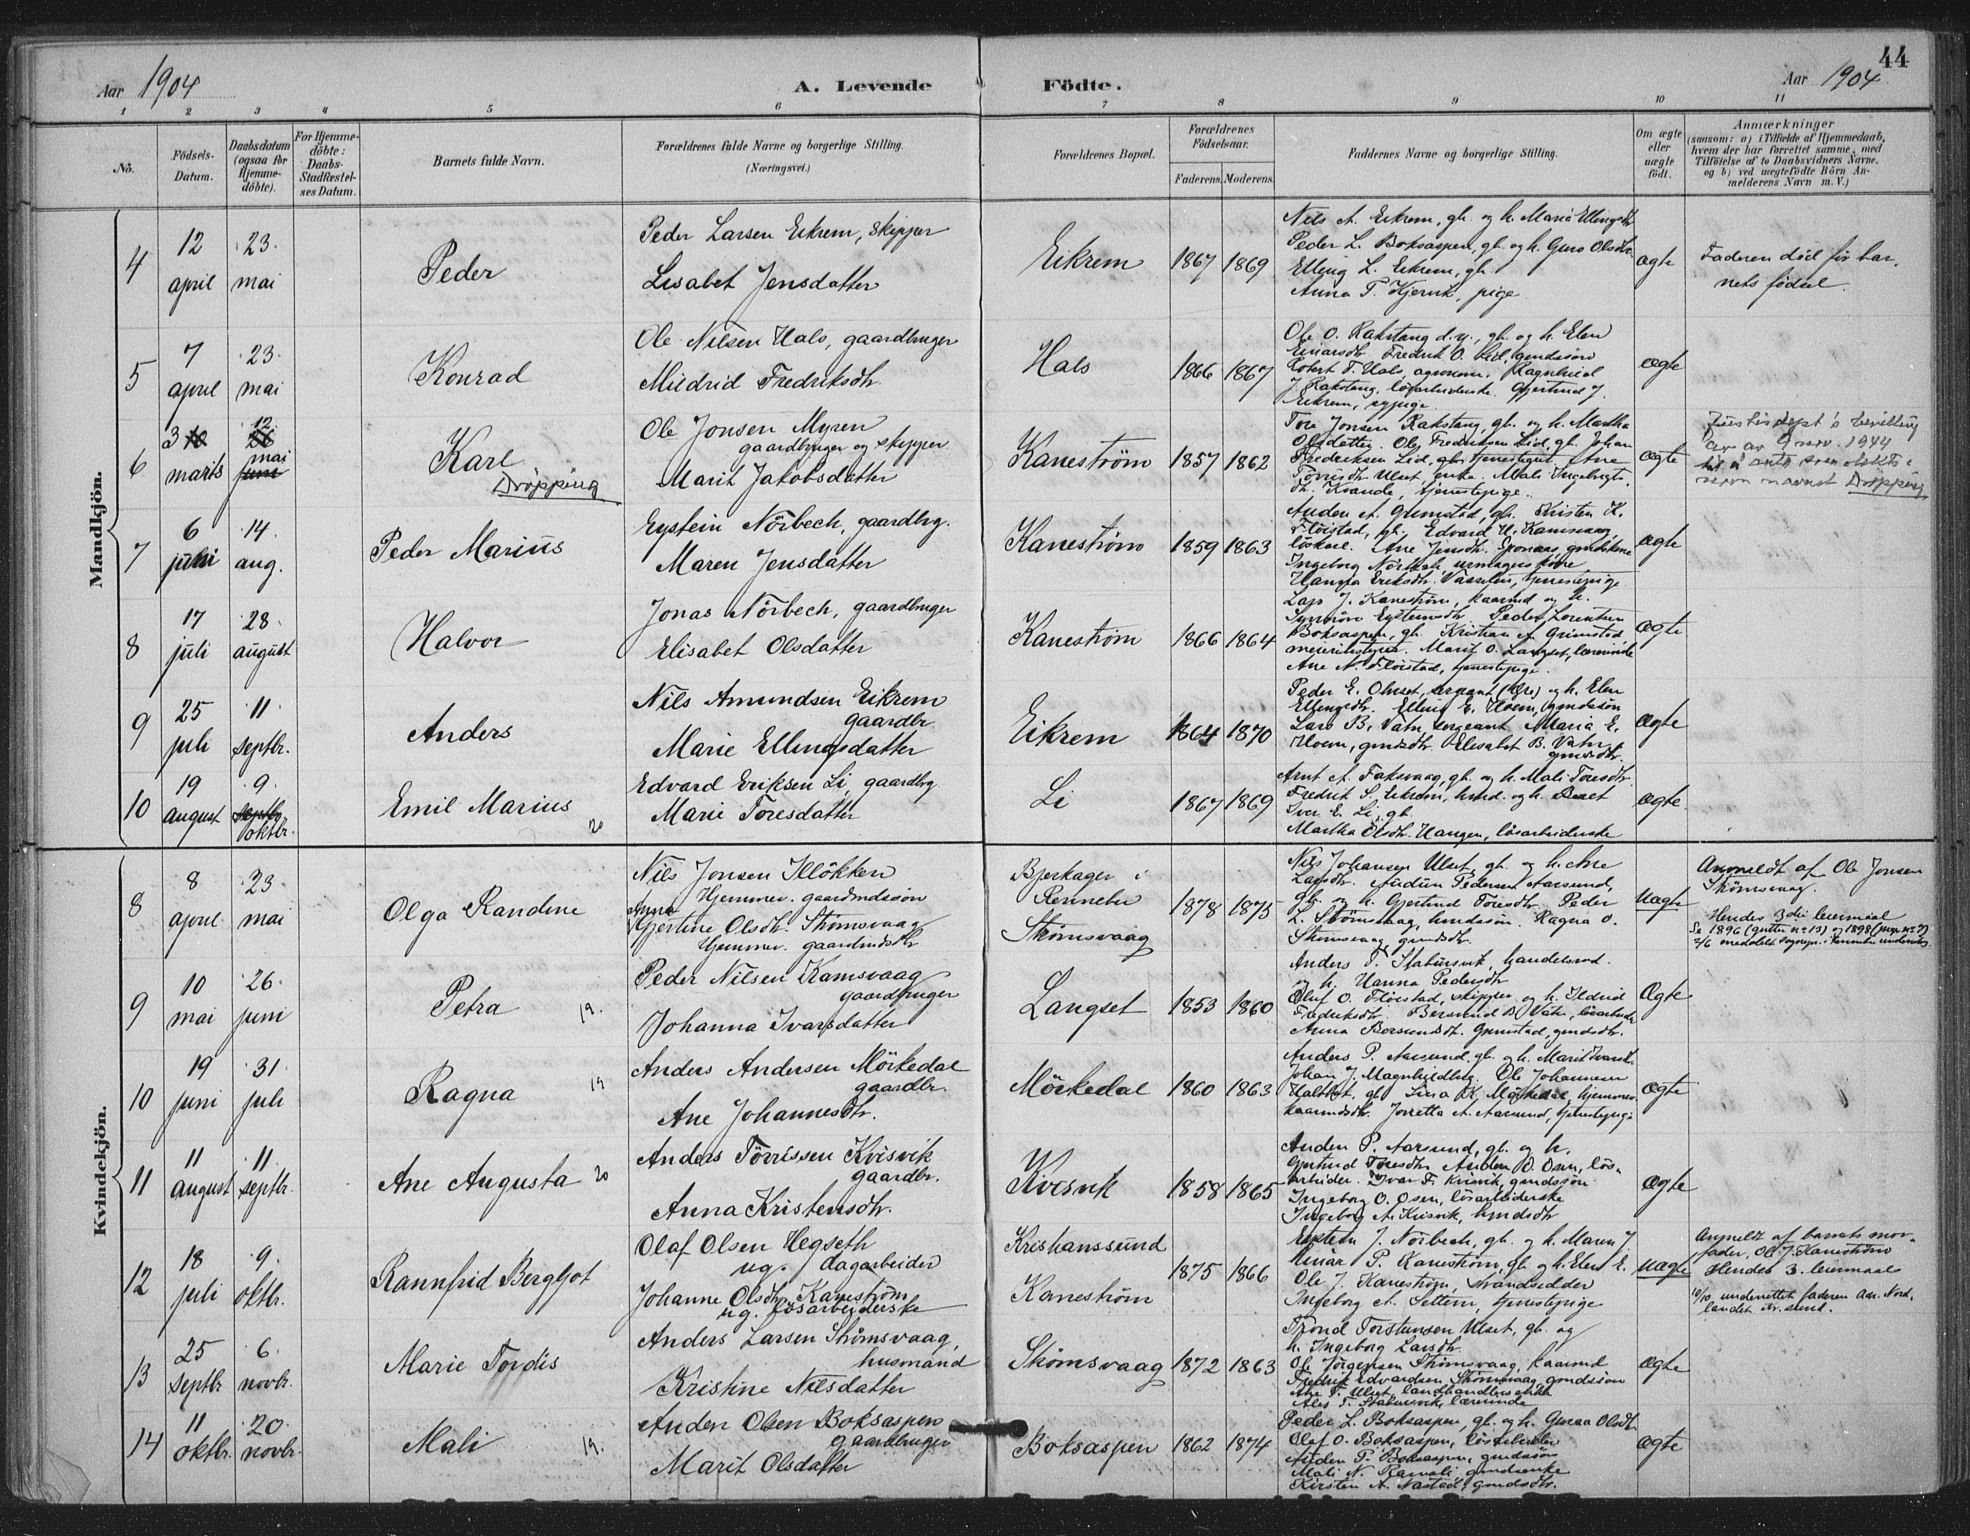 44
Aar 1904 A. Levende Födte. Aar 1904
1 2 3 4 5 6 7 8 9 10 11
No.
Födsels-Datum.
Daabsdatum (ogsaa for Hjemme-döbte).
For Hjemme-döbte: Daabs-Stadfæstel-ses Datum.
Barnets fulde Navn.
Forældrenes fulde Navne og borgerlige Stilling.
(Næringsvei.)
Forældrenes Bopæl.
Forældrenes Födselsaar.
Faderens. Moderens.
Faddernes Navne og borgerlige Stilling.
Om ægte eller uægte födt.
Anmærkninger
(saasom: a) i Tilfælde af Hjemmedaab,
hvem der har forrettet samme, med
Tilföielse af to Daabsvidners Navne,
og b) ved uægtefödte Börn An-
melderens Navn m. V.)
Mandkjön.
4 12 april 23 mai Peder
Peder Larsen Eikrem, skipper
Lisabet Jensdatter
Eikrem 1867 1869
Nils A. Eikrem, gb. og h. Maria Ellingsdtr
Peder L. Boksaspen, gb. og h. Guro Olsdtr.
Elling L. Eikrem, gb.
Anna T. Hjervik, pige
ægte
Faderen död för bar-
nets födsel.
5 7 april 23 mai Konrad
Ole Nilsen Hals, gaardbruger
Mildrid Fredriksdtr.
Hals 1866 1867
Ole O. Rakstang d.y., gb. og h. Elen
Einarsdtr. Fredrik O. Lid, gmdssön
Robert T. Hals, agronom. Ragnhild
J. Rakstang, lösarbeiderske. Gjertrud J.
Eikrem, sypige
ægte
6 3 marts 12 mai Karl Dröpping
Ole Jonsen Myren
gaardbruger og skipper
Marit Jakobsdatter
Kaneström 1857 1862
Tore Jonsen Rakstang, gb. og h. Martha
Olsdatter. Ole Fredriksen Lid, gb. Johan
Fredriksen Lid, Ane
Ulset, enke. Mali Ingebrigts-
dtr. Kvande, tjenestepige.
ægte
Justisdept's bevilling
av 9 nov. 1944
til å anta som slekts-
navn navnet Dröpping
7 6 juni 14 aug. Peder Marius
Eystein Nörbech, gaardbrg.
Maren Jensdatter
Kaneström 1859 1863
Anders A. Grimstad, gb. Kristen K.
Flöistad, gb. Edvard H. Ramsvaag,
löskarl. Ane Jensdtr.
Ingeborg Nörbech, urmagers
Eriksdtr. tjenestepige
ægte
8 17 juli 28 august Halvor
Jonas Nörbech, gaardbruger
Elisabet Olsdatter
Kaneström 1866 1864
Lars J. Kaneström, kaarmd og h.
Synnöve Eysteinsdtr. Peder Lorentsen
Boksaspen, gb. Kristian A. Grimstad,
meieribestyrer. Marit O. Langset, lærerinde
Ane N. Flöistad, tjenestepige.
ægte
9 25 juli 11 septbr. Anders
Nils Amundsen Eikrem
gaardbr.
Marie Ellingsdatter
Eikrem 1864 1870
Peder E. Ohset, sergeant og h. Elen
Ellingsdtr. Elling E. Hoem, gmdssön
Lars B. Vatn, sergeant Maria E.
Hoem, gmdsdtr. Elisabet B. Vatn,
gmdsdtr.
ægte
10 19 august 9 septbr. oktbr. Emil Marius 20
Edvard Eriksen Li, gaardbrg
Marie Toresdatter
Li 1867 1869
Arnt A. Faksvaag, gb. og h. Mali Toresdtr.
Fredrik S. Eikrem, hmd. og h. Beret
Iver E. Li, gb.
Martha Olsdtr. Haugen, lösarbeiderske
ægte
Kvindekjön.
8 8 april 23 mai Olga Randine
Nils Jonsen Illökken
Hjemmev. gaardmdssön
Anne
Gjertine Olsdtr. Strömsvaag
Hjemmev. gaardmdsdtr
Bjerkager i
Rennebu
Strömsvaag
1878 1875
Nils Johansen Ulset, gb. og h. Ane
Larsdtr. Audun Pedersen Aarsund,
gb. og h. Gjertrud Toresdtr. Peder
L. Strömsvaag, hmdssön. Ragna O.
Strömsvaag gmdsdtr.
uægte
Anmeldt af Ole Jonsen
Strömsvaag.
Hendes 3die leiermaal
Se 1896 (gutter nr 13) og 1898 (piger nr 7)
9 10 mai 26 juni Petra 19.
Peder Nilsen Ramsvaag
gaardbruger
Johanna Ivarsdatter
Langset 1853 1860
Anders T. Stabursvik, handelsmd.
og h. Hanna Pedersdtr
Oluf O. Flöistad, skipper og h. Ildrid
Fredriksdtr. Bersvend B. Vatn, lösarbeider
Anna Bersvendsdt. Grimstad, gmdsdtr.
Ægte
10 19 juni 31 juli Ragna 19
Anders Andersen Mörkedal
gaardbr.
Ane Johannesdtr.
Mörkedal 1860 1863
Anders P. Aarsund, gb. og h. Marit Ivarsdtr.
Johan J. Magnhildberg. Ole Johannesen
Halset, gb. Lina K. Mörkedal, hjemmev.
kaarmdsdtr. Joretta A. Aarsund, tjenestepige
ægte
11 11 august 11 septbr. Ane Augusta 20
Anders Törrissen Kvisvik
gaardbr.
Anna Kristensdtr.
Kvisvik 1858 1865
Anders P. Aarsund, gb. og h.
Gjertrud Toresdtr. Anders O. Osen, lös-
arbeider. Ivar T. Kvisvik, gmdssön
Ingeborg O. Osen, lösarbeiderske
Ingeborg A. Kvisvik, hmdsdtr
ægte
12 18 juli 9 oktbr. Rannfrid Bergljot
Olaf Olsen Hegseth
ug. dagarbeider
Johanne Olsdtr. Kaneström
ug. lösarbeiderske
Kristianssund
Kaneström
1875 1866
Eystein J. Nörbech, gb. og h. Maren J.
Einar P. Kaneström, gb og h. Elen E.
Ole J. Kaneström, strandsidder
Ingeborg A. Settem, tjenestepige
uægte
Anmeldt af barnets mor-
fader, Ole J. Kaneström
Hendes 3. leiermaal
10/10 underrettet faderen
13 25 septbr 6 novbr. Marie Tordis
Anders Larsen Strömsvaag,
husmand
Kristine Nilsdatter
Strömsvaag 1872 1863
Trond Torstensen Ulset, gb. og
h. Ingeborg Larsdtr.
Ole Jörgensen Strömsvaag, kaarmd
Fredrik Edvardsen Strömsvaag, gmdssön
Ane T. Ulset, landhandlers enke
T. Stabursvik, lærerinde
ægte
14 11 oktbr. 20 novbr. Mali 19.
Anders Olsen Boksaspen
gaardbruger
Marit Olsdatter
Boksaspen 1862 1874
Peder L. Boksaspen, gb. og h. Guroa Olsdtr
Olaf O. Boksaspen, lösarbeider
Anders P. Boksaspen, gmdssön
Mali N. gmdsenke
Kirsten A. Nastad, gmdsdtr.
ægte